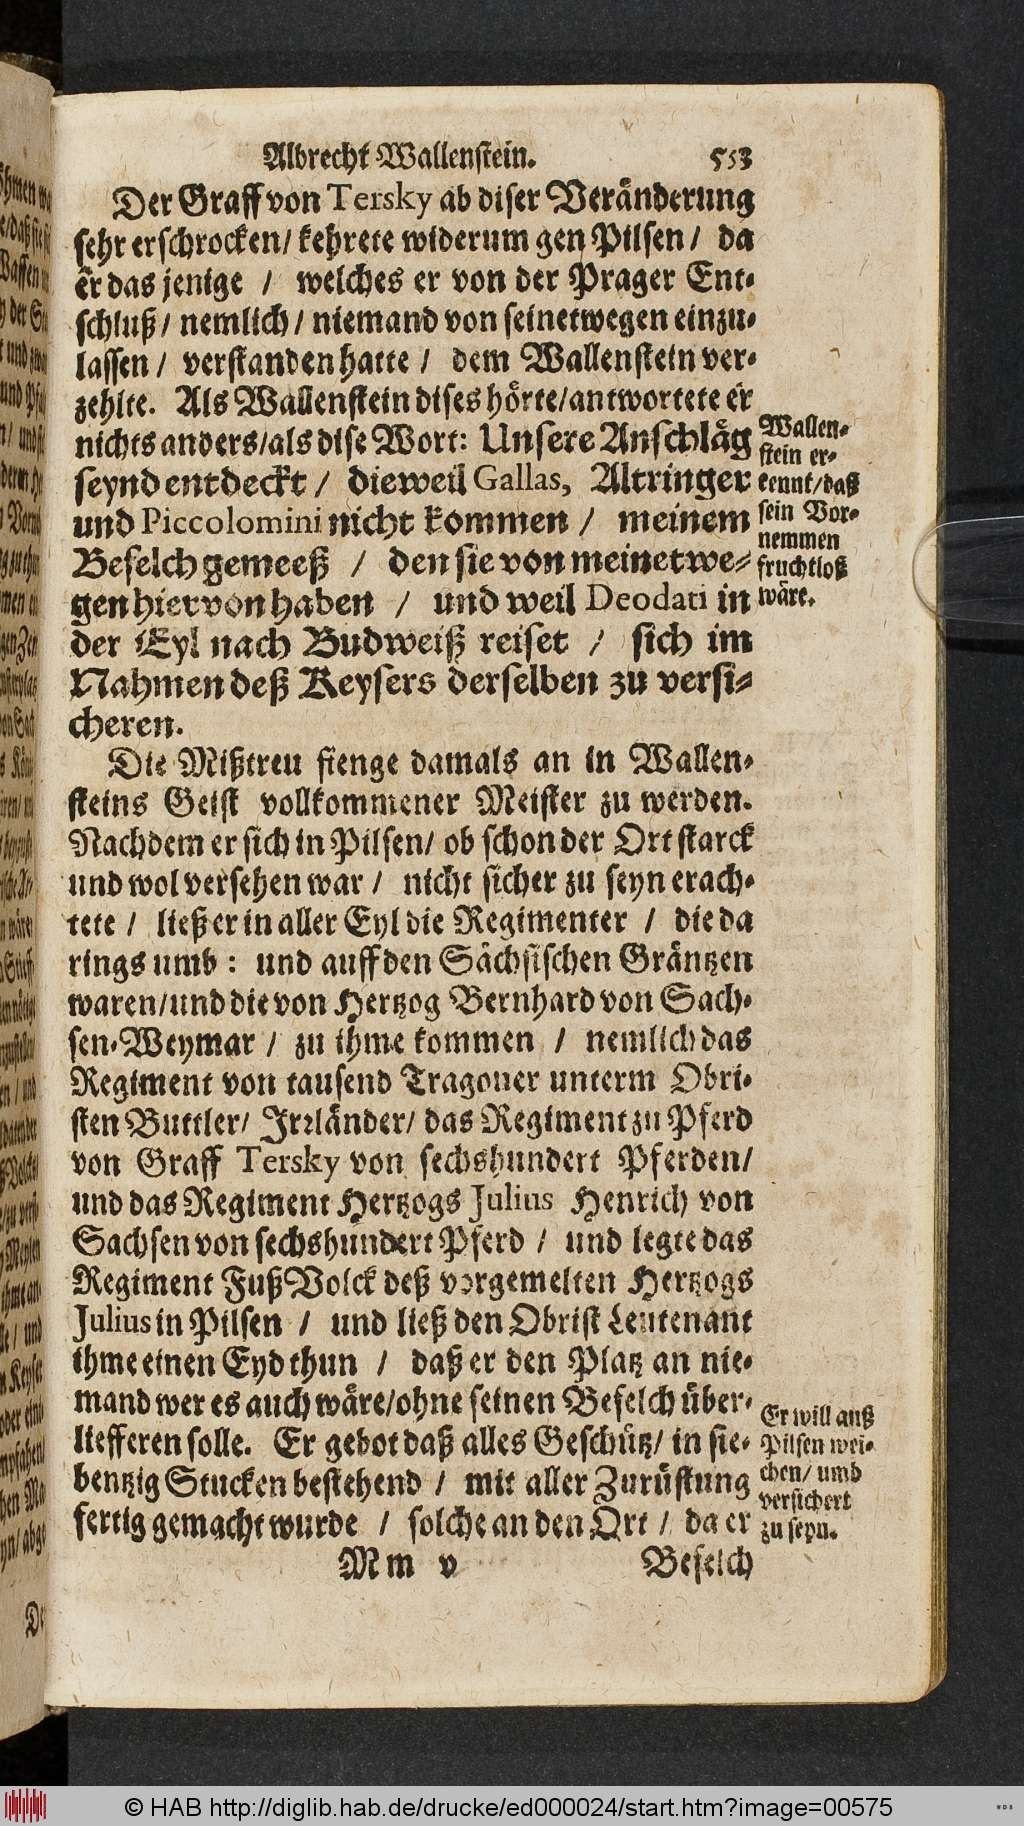 Albrecht Wallenstein. 553
Der Graff von Tersky ab diser Veränderung
sehr erschrocken/ kehrete widerum gen Pilsen/ da
er das jenige / welches er von der Prager Ent-
schluß/ nemlich/ niemand von seinetwegen einzu-
lassen / verstanden hatte / dem Wallenstein ver-
zehlte. Als Wallenstein dises hörte/antwortete er
nichts anders/als dise Wort: Unsere Anschläg
seynd entdeckt / dieweil Gallas, Altringer
und Piccolomini nicht kommen / meinem
Befelch gemeeß / den sie von meinetwe-
gen hiervon haben / und weil Deodati in
der Eyl nach Budweiß reiset / sich im
Nahmen deß Keysers derselben zu versi-
cheren.
Wallen-
stein er-
kennt/daß
sein Vor-
nemmen
fruchtloß
wäre.
Die Mißtreu fienge damals an in Wallen-
steins Geist vollkommener Meister zu werden.
Nachdem er sich in Pilsen/ ob schon der Ort starck
und wol versehen war / nicht sicher zu seyn erach-
tete / ließ er in aller Eyl die Regimenter / die da
rings umb : und auff den Sächsischen Gräntzen
waren/und die von Hertzog Bernhard von Sach-
sen-Weymar / zu ihme kommen / nemlich das
Regiment von tausend Tragoner unterm Obri-
sten Buttler/ Irrländer/ das Regiment zu Pferd
von Graff Tersky von sechshundert Pferden/
und das Regiment Hertzogs Julius Henrich von
Sachsen von sechshundert Pferd / und legte das
Regiment Fuß Volck deß vorgemelten Hertzogs
Julius in Pilsen / und ließ den Obrist Leutenant
ihme einen Eyd thun / daß er den Platz an nie-
mand wer es auch wäre/ohne seinen Befelch über-
liefferen solle. Er gebot daß alles Geschütz/ in sie-
bentzig Stucken bestehend / mit aller Zurüstung
fertig gemacht wurde / solche an den Ort / da er
Er will auß
Pilsen wei-
chen/ umb
versichert
zu seyn.
Mm v Befelch
© HAB http://diglib.hab.de/drucke/ed000024/start.htm?image=00575